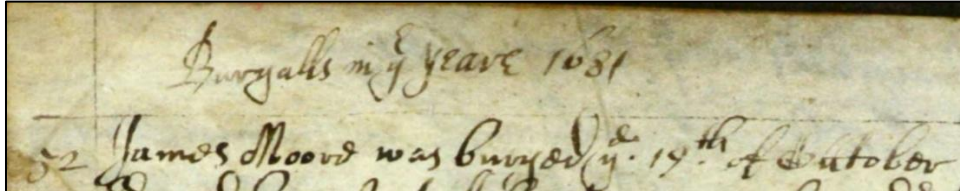 Buryalls in yᵉ yeare 1681
52 James Moore was buryed yᵉ. 19th of Octtober